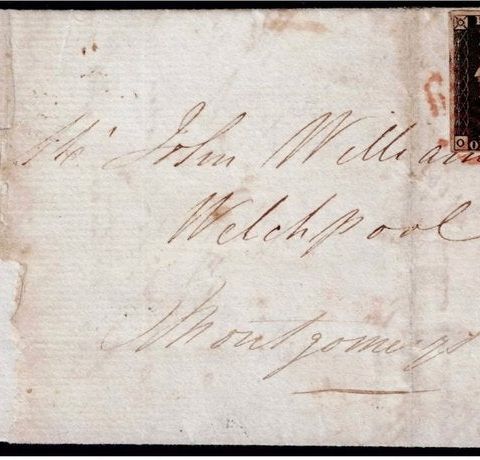 Mr John William
Welchpool
Montgomery
O